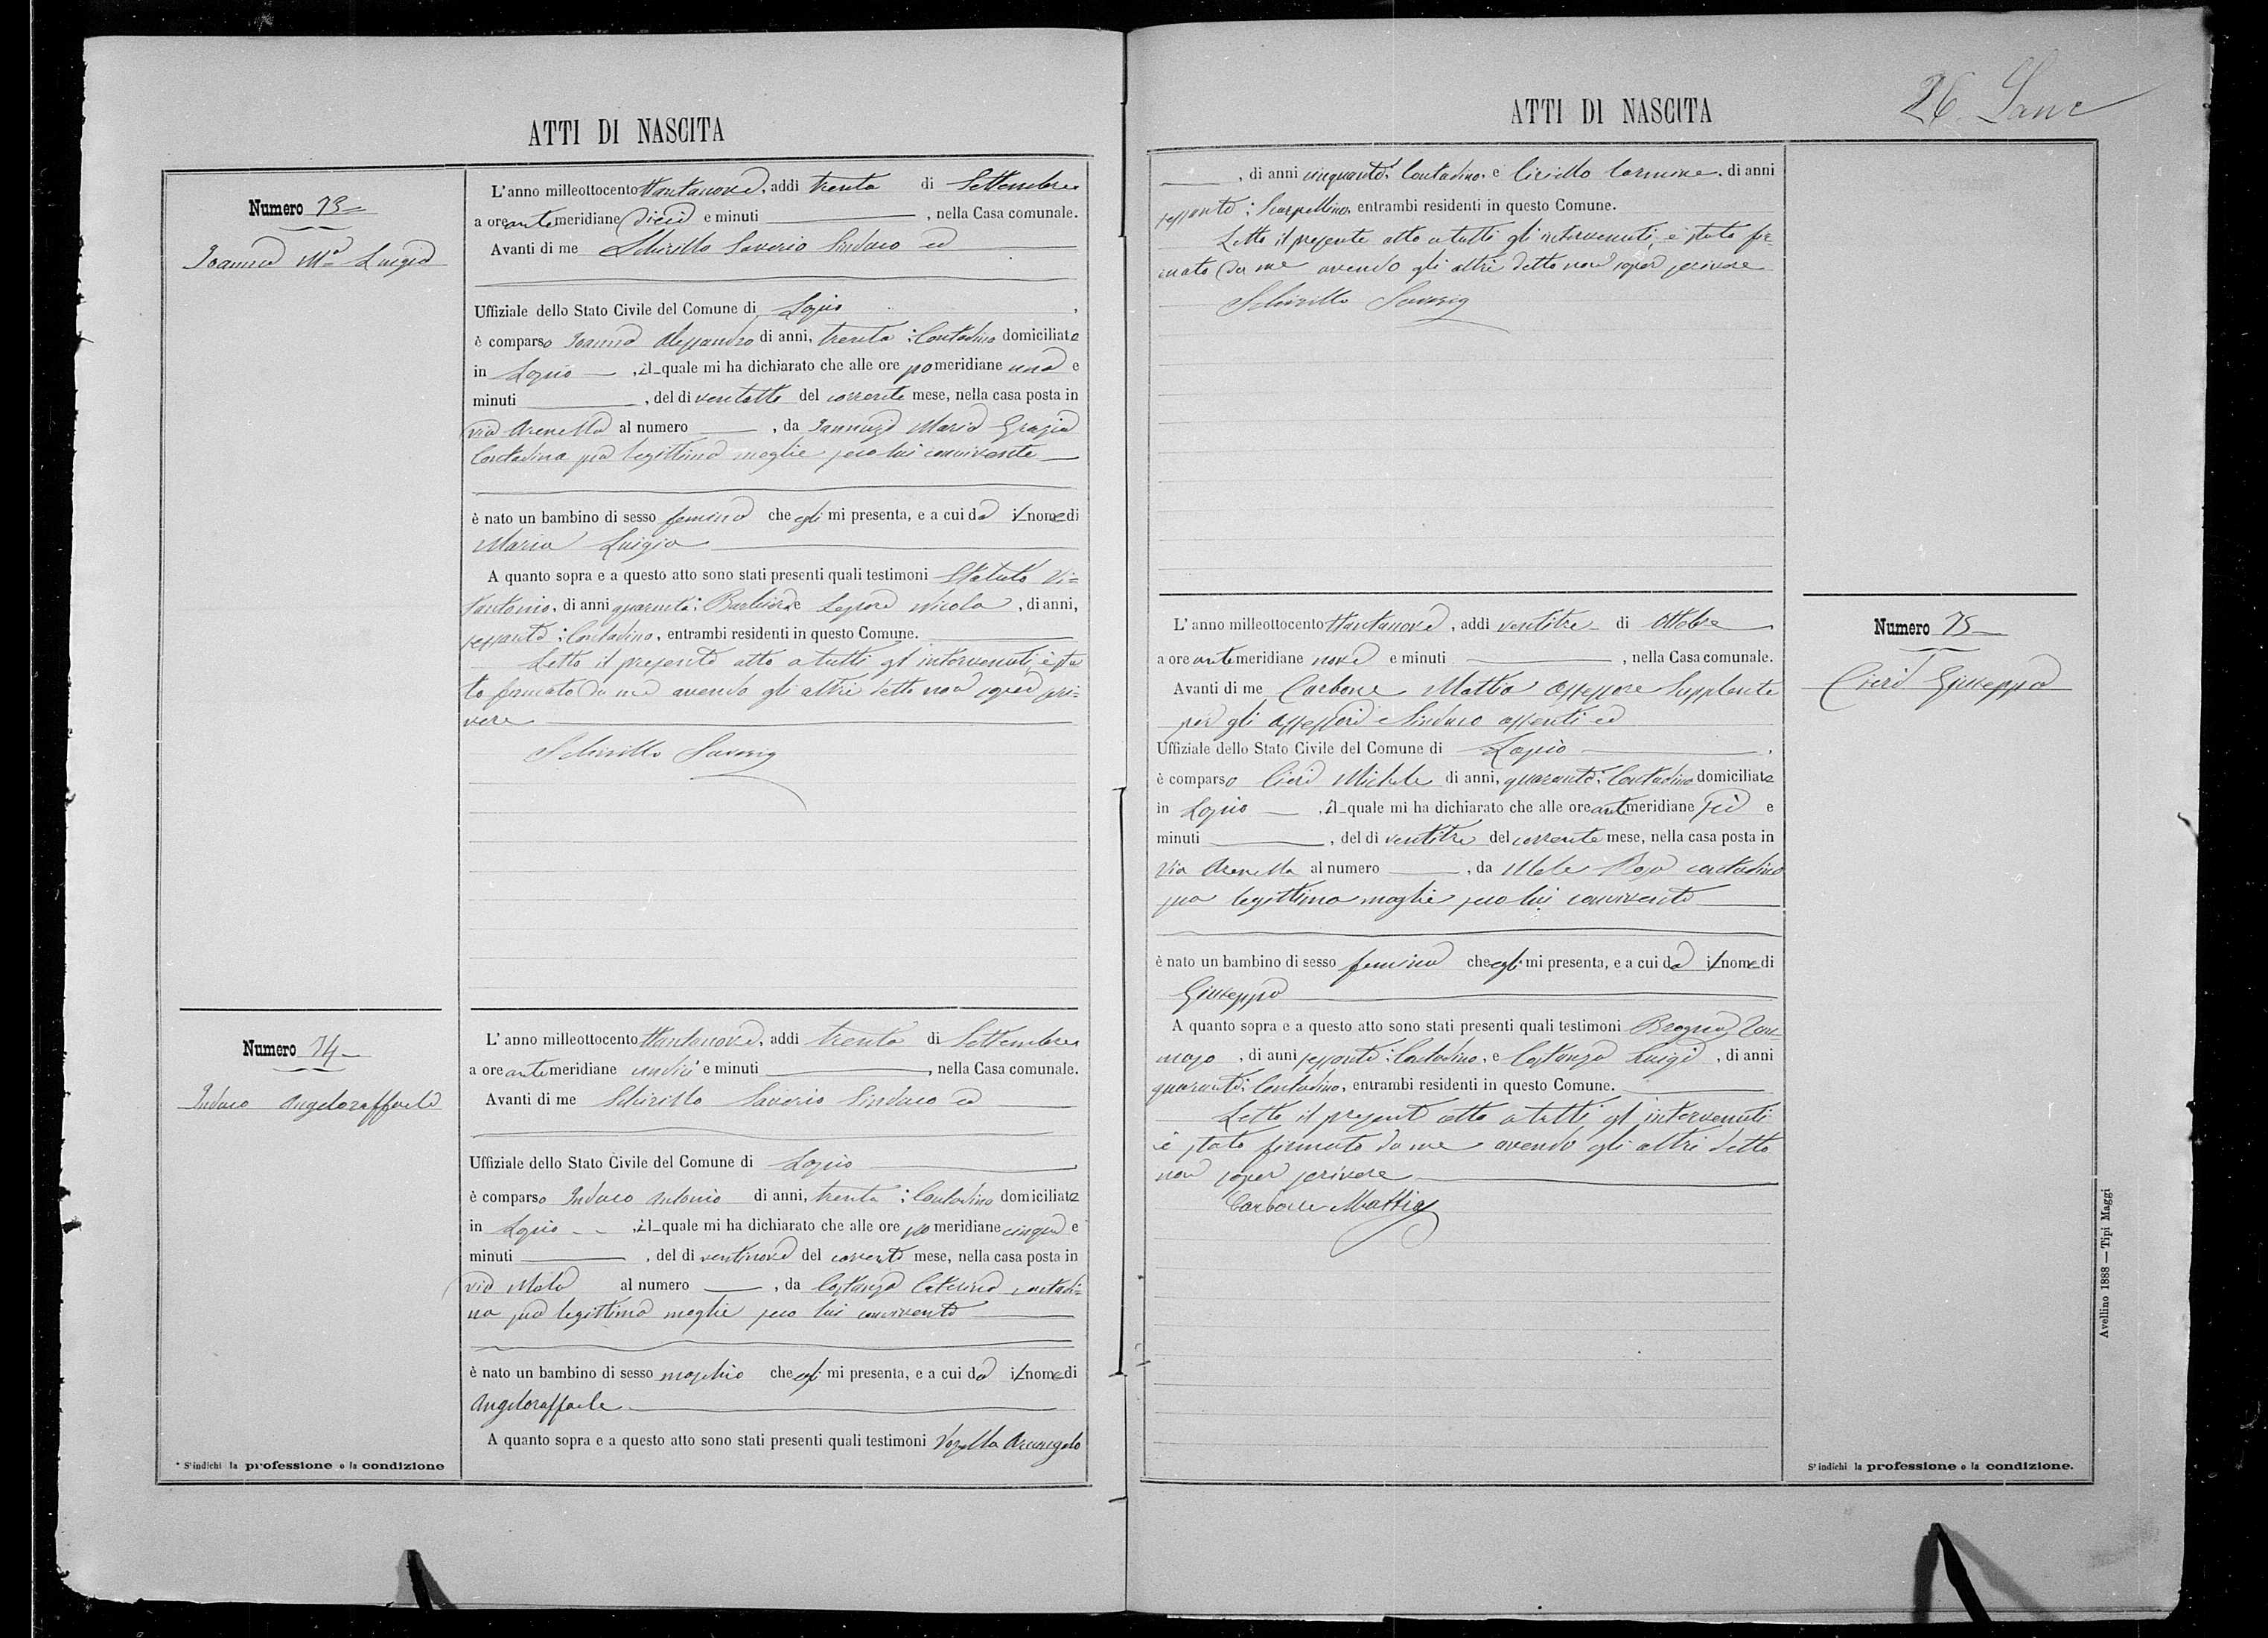 ATTI DI NASCITA
Numero 73
Ioanna Mª Luigia
L'anno milleottocento ttantanove, addi trenta di Settembre
a ore antemeridiane dieci e minuti , nella Casa comunale.
Avanti di me Schirillo Saverio Sindaco ed
Uffiziale dello Stato Civile del Comune di Lapio ,
è comparso Ioanna Alessandro di anni, trenta ; Contadino domiciliato
in Lapio , il quale mi ha dichiarato che alle ore pomeridiane una e
minuti , del dì ventotto del corrente mese, nella casa posta in
via Arenella al numero , da Iannuzzi Maria Grazia
Contadina sua legittima moglie seco lui convivente
è nato un bambino di sesso feminino che egli mi presenta, e a cui da il nome di
Maria Luigia
A quanto sopra e a questo atto sono stati presenti quali testimoni Statuto Vi=
tantonio, di anni quaranta; Barbiere e Lepore Nicola , di anni,
sessanta ; Contadino, entrambi residenti in questo Comune.
Letto il presente atto a tutti gl'intervenuti, è sta
to firmato da me avendo gli altri detto non saper scri=
vere
Schirillo Saverio
Numero 74
Indaco Angeloraffaele
L'anno milleottocento ttantanove, addi trenta di Settembre
a ore antemeridiane undici e minuti , nella Casa comunale.
Avanti di me Schirillo Saverio Sindaco ed
Uffiziale dello Stato Civile del Comune di Lapio
è comparso Indaco Antonio di anni, trenta ; Contadino domiciliato
in Lapio , il quale mi ha dichiarato che alle ore pomeridiane cinque e
minuti , del dì ventinove del corrente mese, nella casa posta in
via al numero , da Costanza Caterina contadi=
na sua legittima moglie seco lui convivente
è nato un bambino di sesso maschio che egli mi presenta, e a cui da il nome di
Angeloraffaele
A quanto sopra e a questo atto sono stati presenti quali testimoni Vozella Arcangelo
* S'indichi la professione o la condizione
ATTI DI NASCITA
26.
, di anni cinquanta; Contadino, e Cirillo Carmine, di anni
sessanta ; Scarpellino, entrambi residenti in questo Comune.
Letto il presente atto a tutti gli intervenuti, è stato fir
mato da me avendo gli altri detto non saper scrivere
Schirillo Saverio
L'anno milleottocento ttantanove, addi ventitre di Ottobre
a ore antemeridiane nove e minuti , nella Casa comunale.
Avanti di me Carbone Mattia Assessore Supplente
per gli assessori e Sindaco assenti ed
Uffiziale dello Stato Civile del Comune di Lapio .
è comparso Cieri Michele di anni, quaranta; Contadino domiciliato
in Lapio , il quale mi ha dichiarato che alle ore antemeridiane sei e
minuti , del dì ventitre del corrente mese, nella casa posta in
Via Arenella al numero , da Mele Rosa contadina
sua legittima moglie seco lui convivente
è nato un bambino di sesso feminino che egli mi presenta, e a cui da il nome di
Giuseppa
A quanto sopra e a questo atto sono stati presenti quali testimoni Brogna Tom=
maso , di anni sessanta; Contadino, e Costanza Luigi , di anni
quaranta; Contadino, entrambi residenti in questo Comune.
Letto il presente atto a tutti gl'intervenuti
è stato firmato da me avendo gli altri detto
non saper scrivere
Carbone Mattia
Numero 75
Cieri Giuseppa
S'indichi la professione o la condizione.
Avellino 1888 — Tipi Maggi